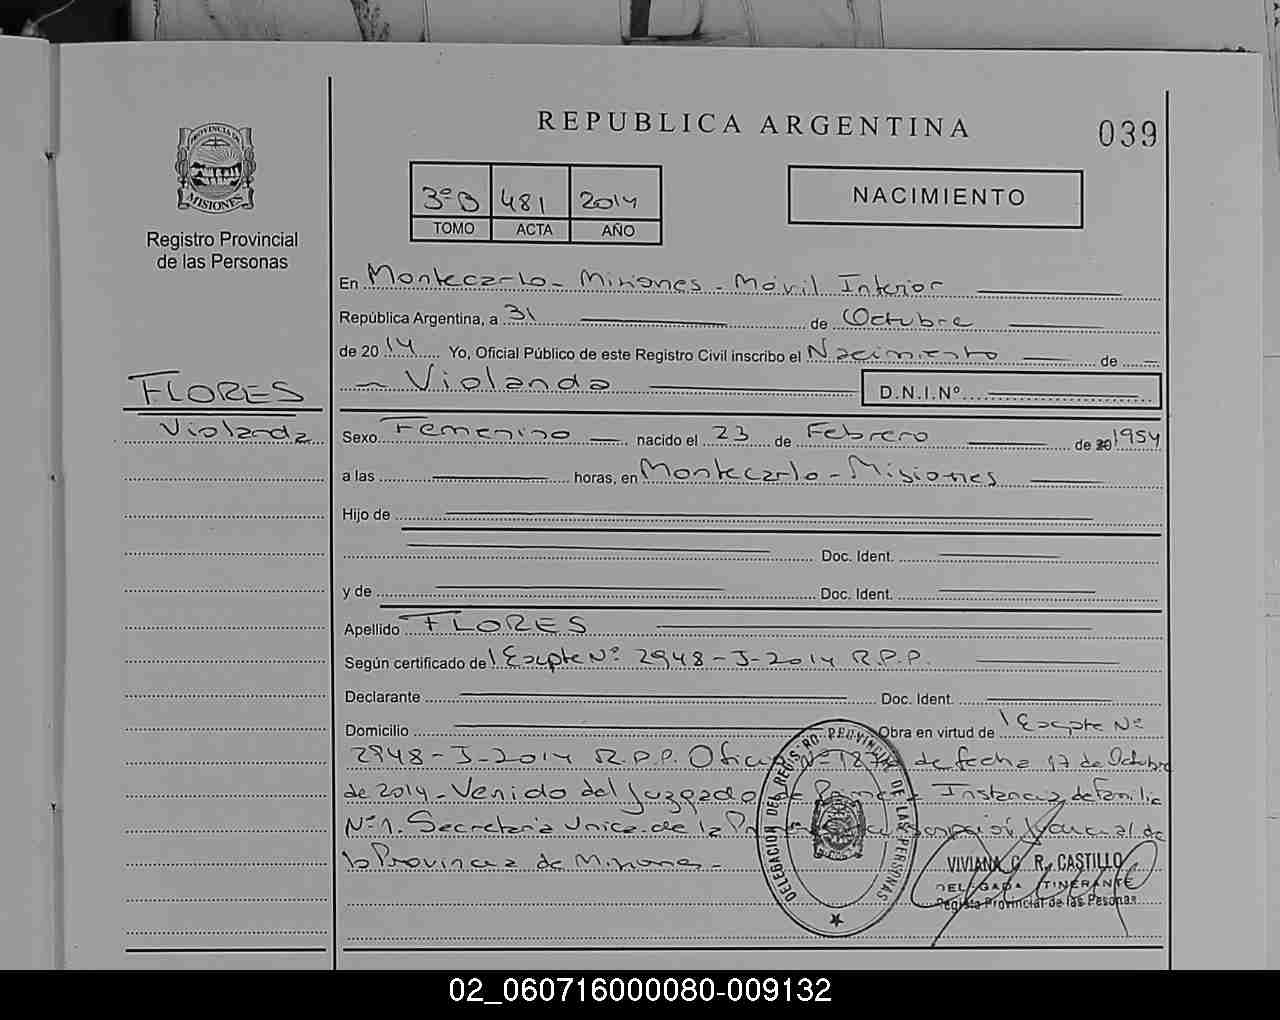 REPUBLICA ARGENTINA
039
PROVINCIA DE
MISIONES
Registro Provincial
de las Personas
3º B 481 2014
TOMO ACTA AÑO
NACIMIENTO
En Montecarlo - Misiones - Móvil Interior
República Argentina, a 31 de Octubre
de 2014 Yo, Oficial Público de este Registro Civil inscribo el Nacimiento de
Violanda
D.N.I.Nº
FLORES
Violanda
Sexo Femenino nacido el 23 de Febrero de 20 1954
a las horas, en Montecarlo - Misiones
Hijo de
Doc. Ident.
y de Doc. Ident.
Apellido FLORES
Según certificado de Expte Nº 2948-J-2014 R.P.P.
Declarante Doc. Ident.
Domicilio Obra en virtud de Expte Nº
2948-J-2014 R.P.P. Oficio Nº de fecha 17 de Octubre
de 2014 - Venido del Juzgado de Primera Instancia de Familia
Nº 1. Secretaría Unica de la Primera Circunscripción Judicial de
la Provincia de Misiones -
DELEGACION DEL REGISTRO PROVINCIAL DE LAS PERSONAS
VIVIANA C. R. CASTILLO
DELEGADA ITINERANTE
Registro Provincial de las Pesonas
02_060716000080-009132